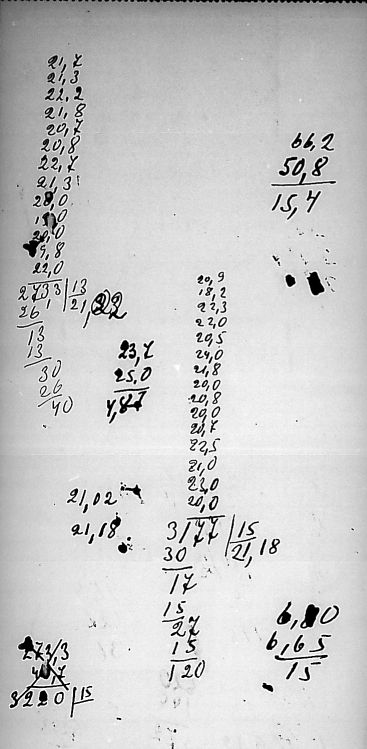 21,7
21,3
22,2
21,8
20,7
20,8
22,7
21,3
22,0
273,3 | 13
26 21,02
13
13
30
26
40
66,2
50,8
15,4
23,7
25,0
4,87
20,9
18,2
22,3
22,0
20,5
24,0
21,8
20,0
20,8
20,0
20,7
22,5
21,0
23,0
20,0
3177 | 15
30 21,18
17
15
27
15
120
21,02
21,18
273,3
3220 | 15
6,80
6,65
15